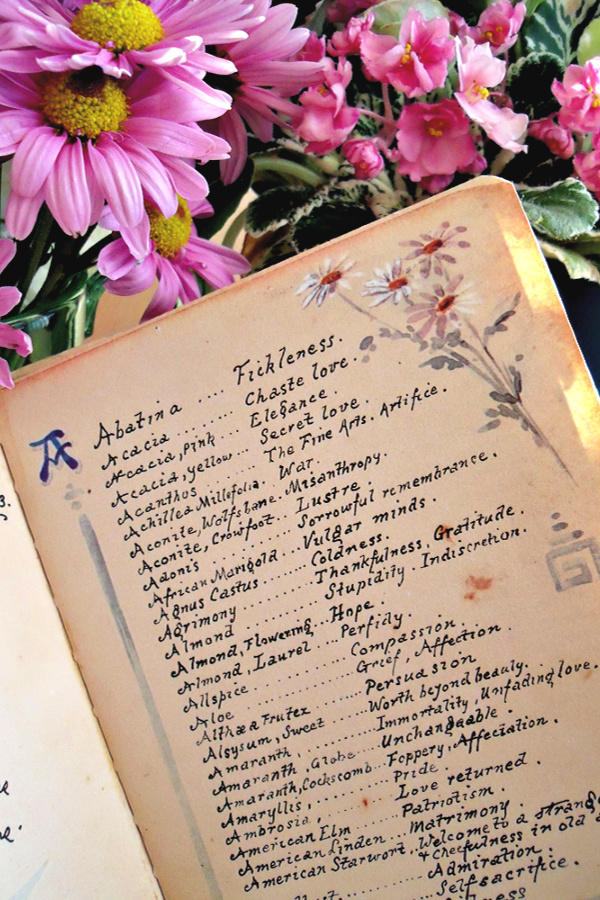 A
Abatina .... Fickleness.
Acacia ........ Chaste love.
Acacia, Pink ..... Elegance.
Acacia, yellow .... Secret love.
Acanthus ........ The Fine Arts. Artifice.
Achillea Millefolia. War.
Aconite, Wolfsbane. Misanthropy.
Aconite, Crowfoot.. Lustre.
Adonis ......... Sorrowful remembrance.
African Marigold ... Vulgar minds.
Agnus Castus ....... Coldness.
Agrimony .......... Thankfulness, Gratitude.
Almond ........... Stupidity. Indiscretion.
Almond, Flowering... Hope.
Almond, Laurel ... Perfidy.
Allspice ........... Compassion.
Aloe ............. Grief, Affection.
Althæa Frutex ...... Persuasion
Alsysum, Sweet ..... Worth beyond beauty.
Amaranth, ......... Immortality, Unfading love.
Amaranth, Globe .... Unchangeable.
Amaranth, Cockscomb... Foppery, Affectation.
Amaryllis, ........ Pride.
Ambrosia, ......... Love returned.
American Elm .... Patriotism.
American Linden ... Matrimony.
American Starwort.. Welcome to a
& Cheefulness in old
Admiration.
Selfsacrifice.
3.